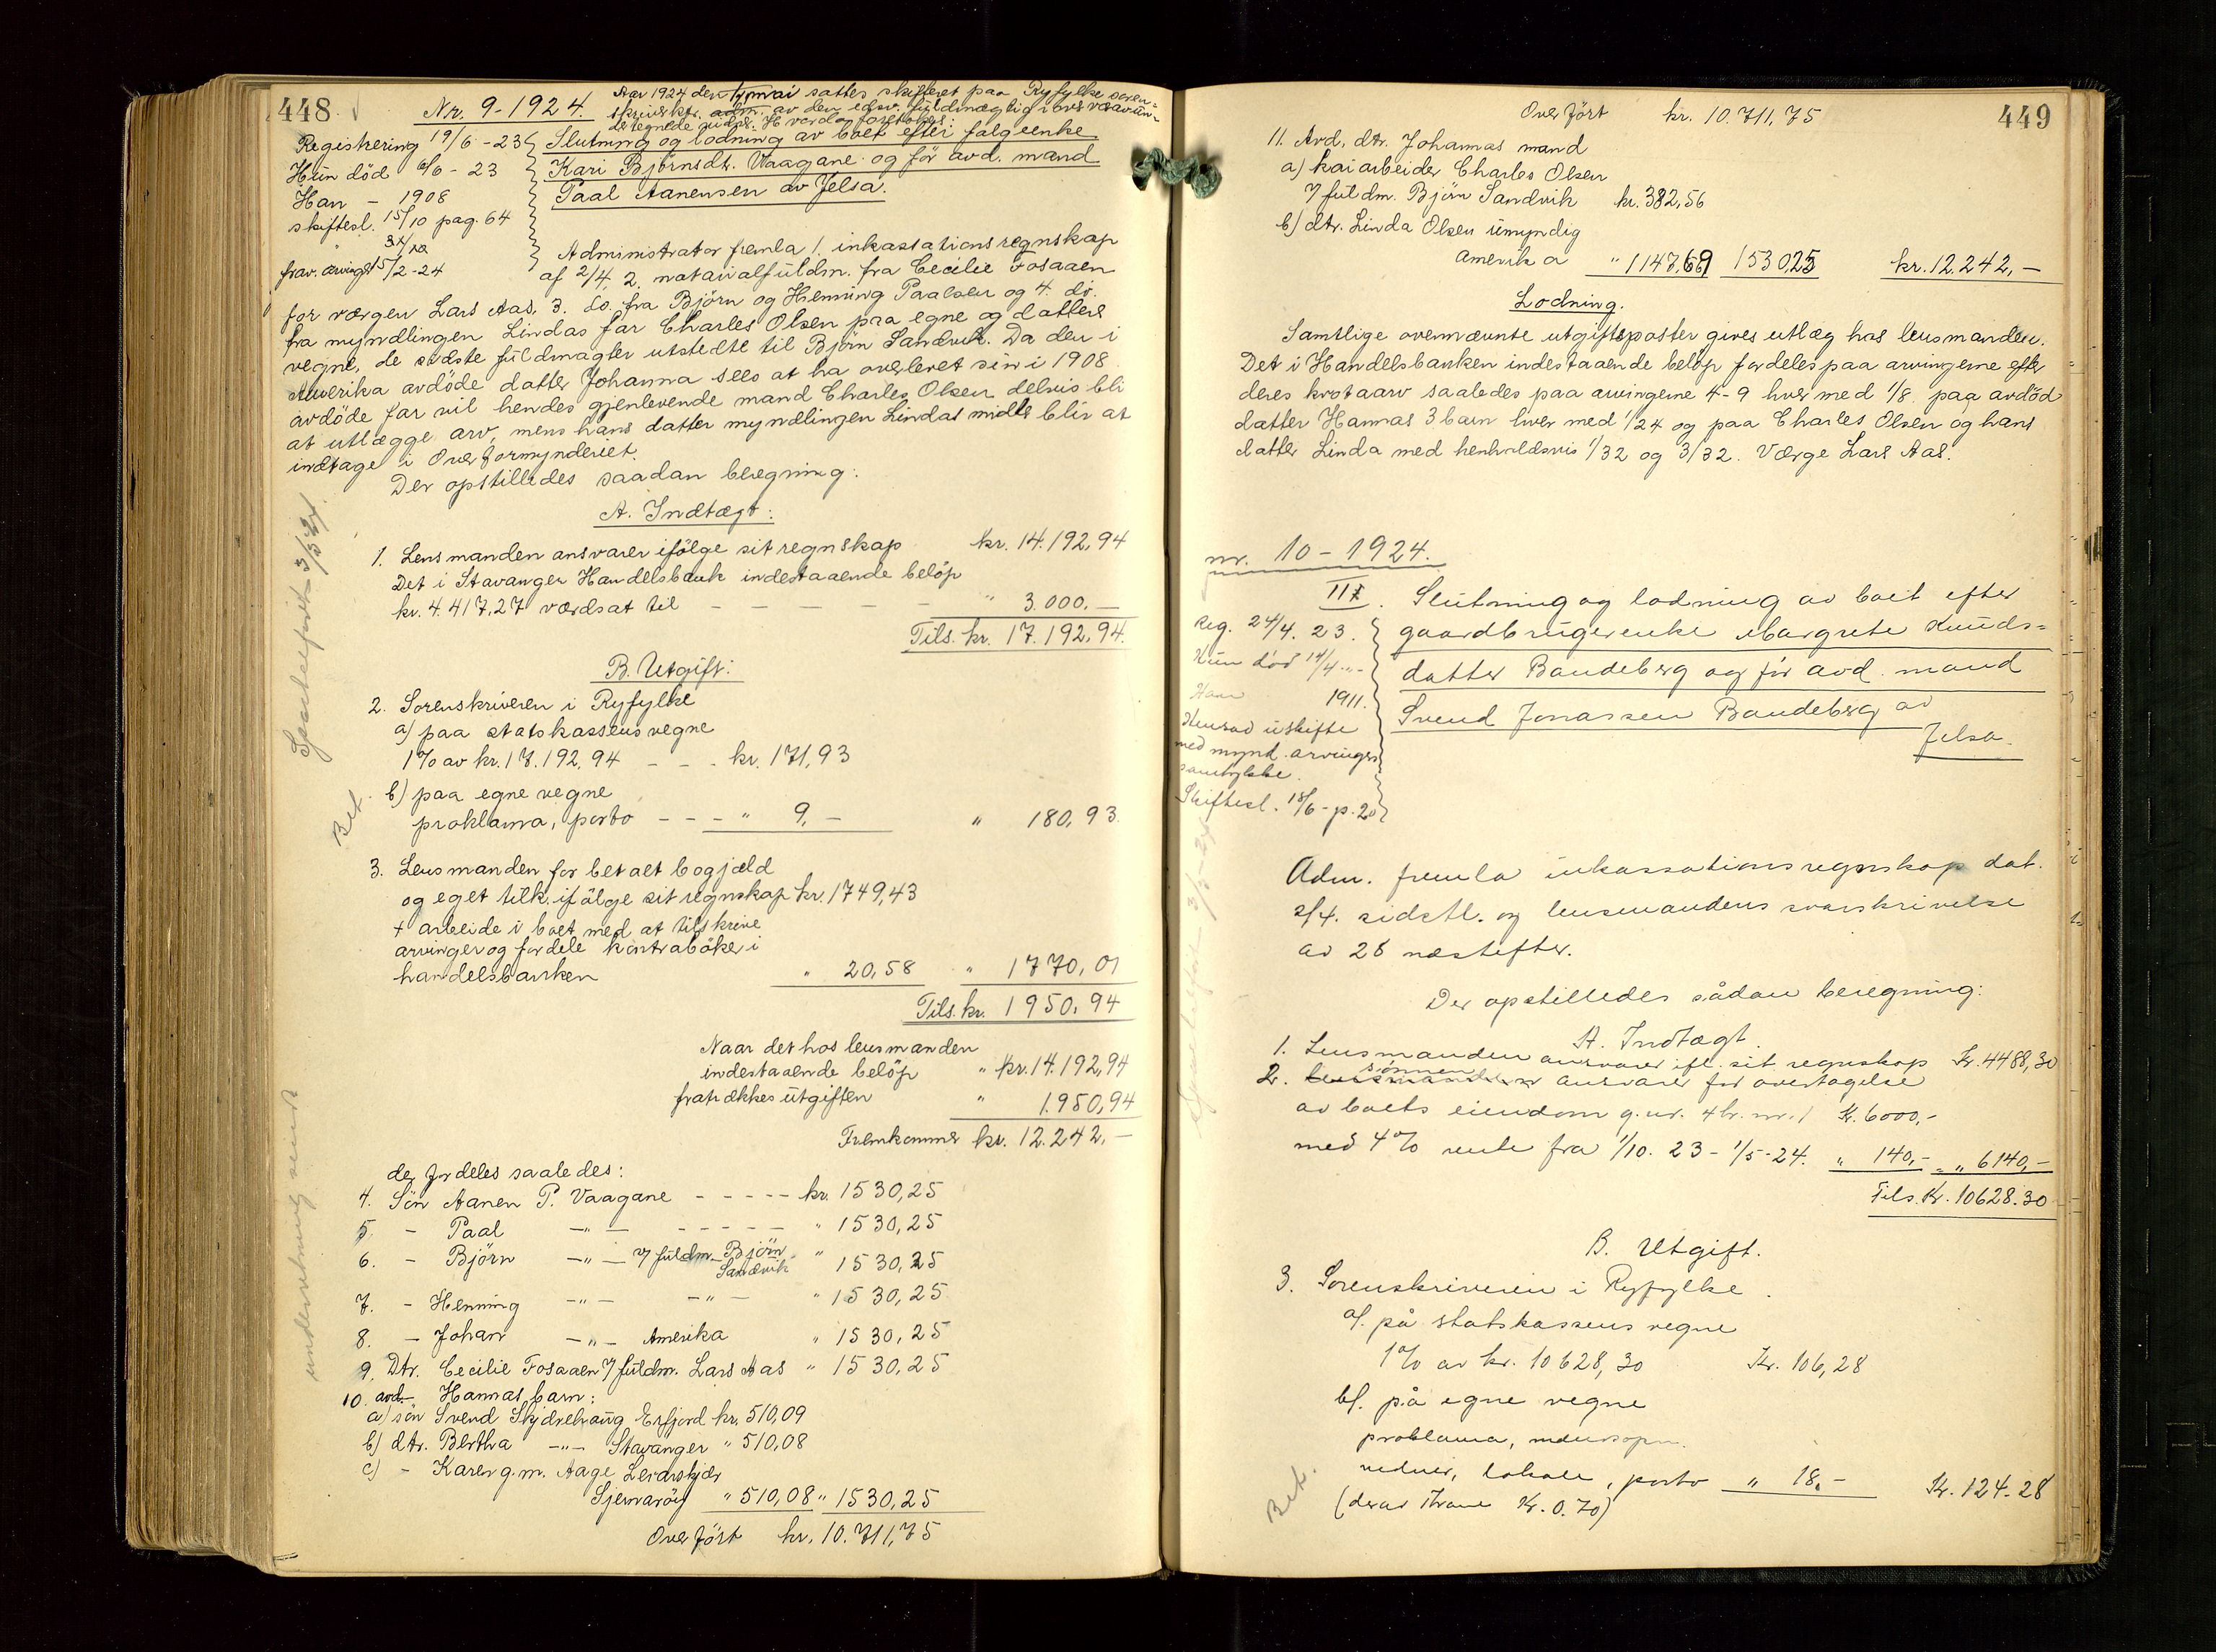 448
Nr. 9-1924.
Aar 1924 den 1 mai sattes skifteret paa Ryfylke soren=
skriverktr. adm. av den edsv. fuldmægtig i overvær av un-
Registrering 19/6-23
Hun död 6/6-23
Han - 1908
skiftesl. 15/10 pag. 64
frav. arvinger 15/2-24
Slutning og lodning av boet efter folgeenke
Kari Björnsdtr. Vaagane og för avd. mand
Paal Aanensen av Jelsa.
Administrator fremla 1. inkassationsregnskap
af 2/4, 2. notarialfuldm. fra Cecilie Fosaaen
for værgen Lars Aas, 3. do. fra Björn og Henning Paalsen og 4. do.
fra myndlingen Lindas far Charles Olsen paa egne og datters
vegne, de sidste fuldmagter utstedte til Björn Sandvik. Da den i
Amerika avdöde datter Johanna sees at ha overlevet sin i 1908
avdöde far vil hendes gjenlevende mand Charles Olsen delvis bli
at utlægge arv, mens hans datter myndlingen Lindas midler blir at
indtage i Overformynderiet.
Der opstilledes saadan beregning:
A. Indtægt:
1. Lensmanden ansvarer ifölge sit regnskap kr. 14.192,94
Det i Stavanger Handelsbank indestaaende belöp
kr. 4.417,27 værdsat til - - - - - " 3.000.-
Tils. kr. 17.192,94.
B. Utgift:
2. Sorenskriveren i Ryfylke
a) paa statskassens vegne
1% av kr. 17.192,94 - - - kr. 171,93
Bet.
b) paa egne vegne
proklama, porto - - - " 9,- " 180,93
3. Lensmanden for betalt bogjæld
og eget tilk. ifölge sit regnskap kr. 1749,43
+ arbeide i boet med at tilskrive
arvinger og fordele kontraböker i
handelsbanken " 20,58 " 1770,01
Tils. kr. 1950,94
Naar det hos lensmanden
indestaaende belöp " kr. 14.192,94
fratrækkes utgiften " 1.950,94
Fremkommer kr. 12.242,-
der fordeles saaledes:
4. Sön Aanen P. Vaagane - - - - - kr. 1530,25
5. - Paal -"- - - - - - " 1530,25
6. - Björn -"- v/ fuldm. Björn Sandvik " 1530,25
7. - Henning -"- -"- " 1530,25
8. - Johan -"- Amerika " 1530,25
9. Dtr. Cecilie Fosaaen v/ fuldm. Lars Aas " 1530,25
10. avd. Hannas barn:
a) sön Svend Skjdrehaug Erfjord kr. 510,09
b) dtr. Bertha -"- Stavanger " 510,08
c) - Karen g.m. Aage
Sjernaröy " 510,08 " 1530,25
Overfört kr. 10.711,75
449
Overfört kr. 10.711,75
11. Avd. dtr. Johannas mand
a) kaiarbeider Charles Olsen
v/ fuldm. Björn Sandvik kr. 382,56
b) dtr. Linda Olsen umyndig
Amerika " 1147,69 1530,25 kr. 12.242,-
Lodning.
Samtlige ovennævnte utgiftsposter gives utlæg hos lensmanden.
Det i Handelsbanken indestaaende belöp fordeles paa arvingerne efter
deres kvotaarv saaledes paa arvingerne 4-9 hver med 1/8. paa avdöd
datter Hannas 3 barn hver med 1/24 og paa Charles Olsen og hans
datter Linda med henholdsvis 1/32 og 3/32. Værge Lars Aas.
nr. 10-1924.
III. Slutning og lodning av boet efter
gaardbrugerenke Margrete Knuds=
datter Bandeberg og för avd. mand
Svend Jonassen Bandeberg av
Jelsa.
Reg. 24/4. 23.
Hun död 14/4 -"-
Han 1911.
Hensad uskifte
med mynd. arvingers
samtykke.
Skiftesl. 18/6 - p. 20
Adm. fremla inkassationsregnskap dat.
2/4. sidstl. og lensmandens svarskrivelse
av 28 næstefter.
Der opstilledes sådan beregning:
A. Indtægt.
1. Lensmanden ansvarer ifl. sit regnskap Kr. 4488,30
2. sönnen ansvarer for overtagelse
av boets eiendom g. nr. 4 br. nr. 1 Kr. 6000,-
med 4% rente fra 1/10. 23 - 1/5-24. " 140,- " 6140,-
Tils. Kr. 10628.30
B. Utgift.
3. Sorenskriveren i Ryfylke.
a/. på statskassens vegne
1% av kr. 10628,30 Kr. 106,28
b/. på egne vegne
proklama,
vidner, lokale, porto " 18.- Kr. 124.28
(derav Kr. 0.70)
Bet.